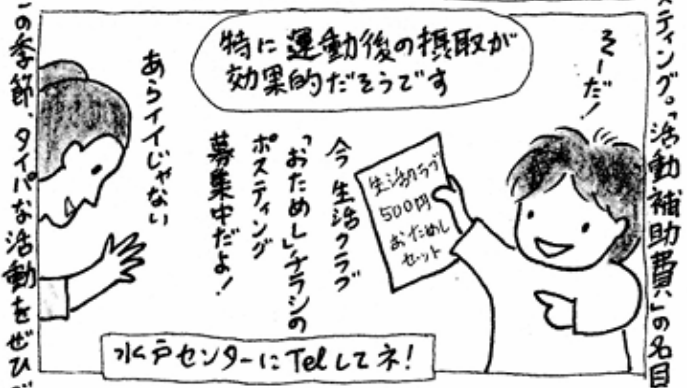 スティング。「活動補助費」の名目
そーだ!
特に運動後の摂取が
効果的だそうです
生活クラブ
500円
おためし
セット
今 生活クラブ
「おためし」チラシの
ポスティング
募集中だよ!
あらイイじゃない
水戸センターにTelしてネ!
の季節、タイパな活動をぜひ